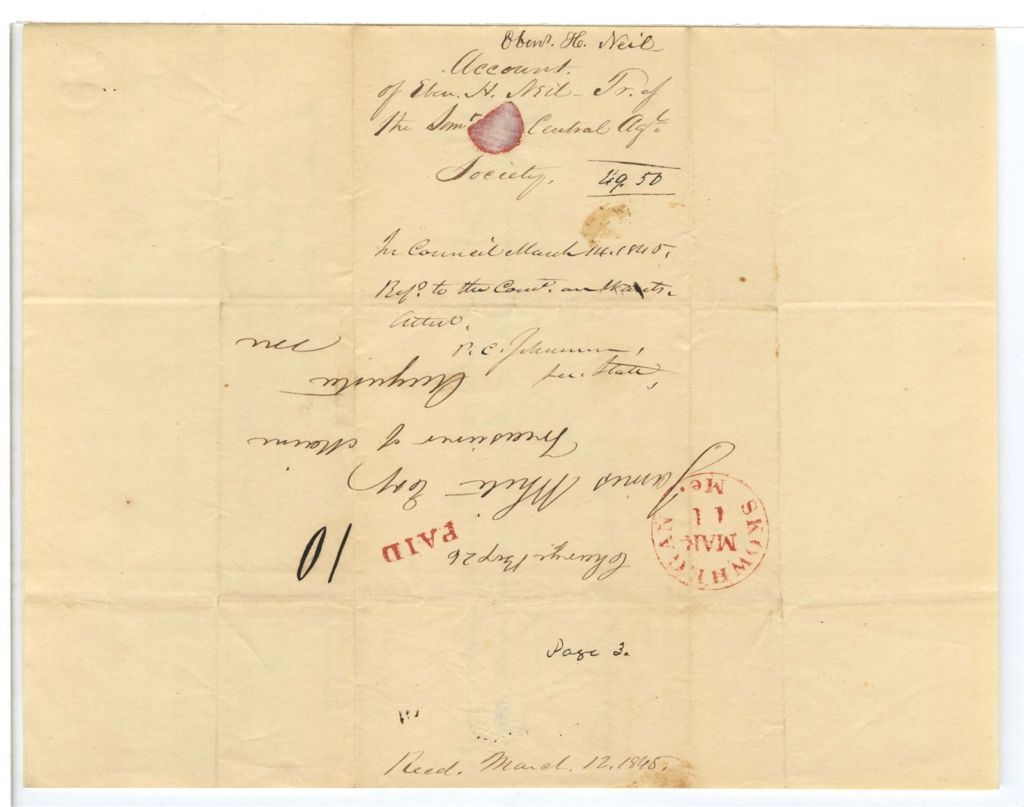 Ebenr. H. Neil
Account.
of Eben. H. Neil - Tr. of
the Somt. Central Agl.
Society.
49.50
In Council March 14. 1845.
Refd. to the Comt. on
Attest.
P. C. Johnson,
Sec. State,
James White Esq
Treasurer of Maine
Augusta
Me
SKOWHEGAN
MAR
11
Me.
PAID
10
Charge Box 26
Page 3.
Recd. March. 12. 1845.